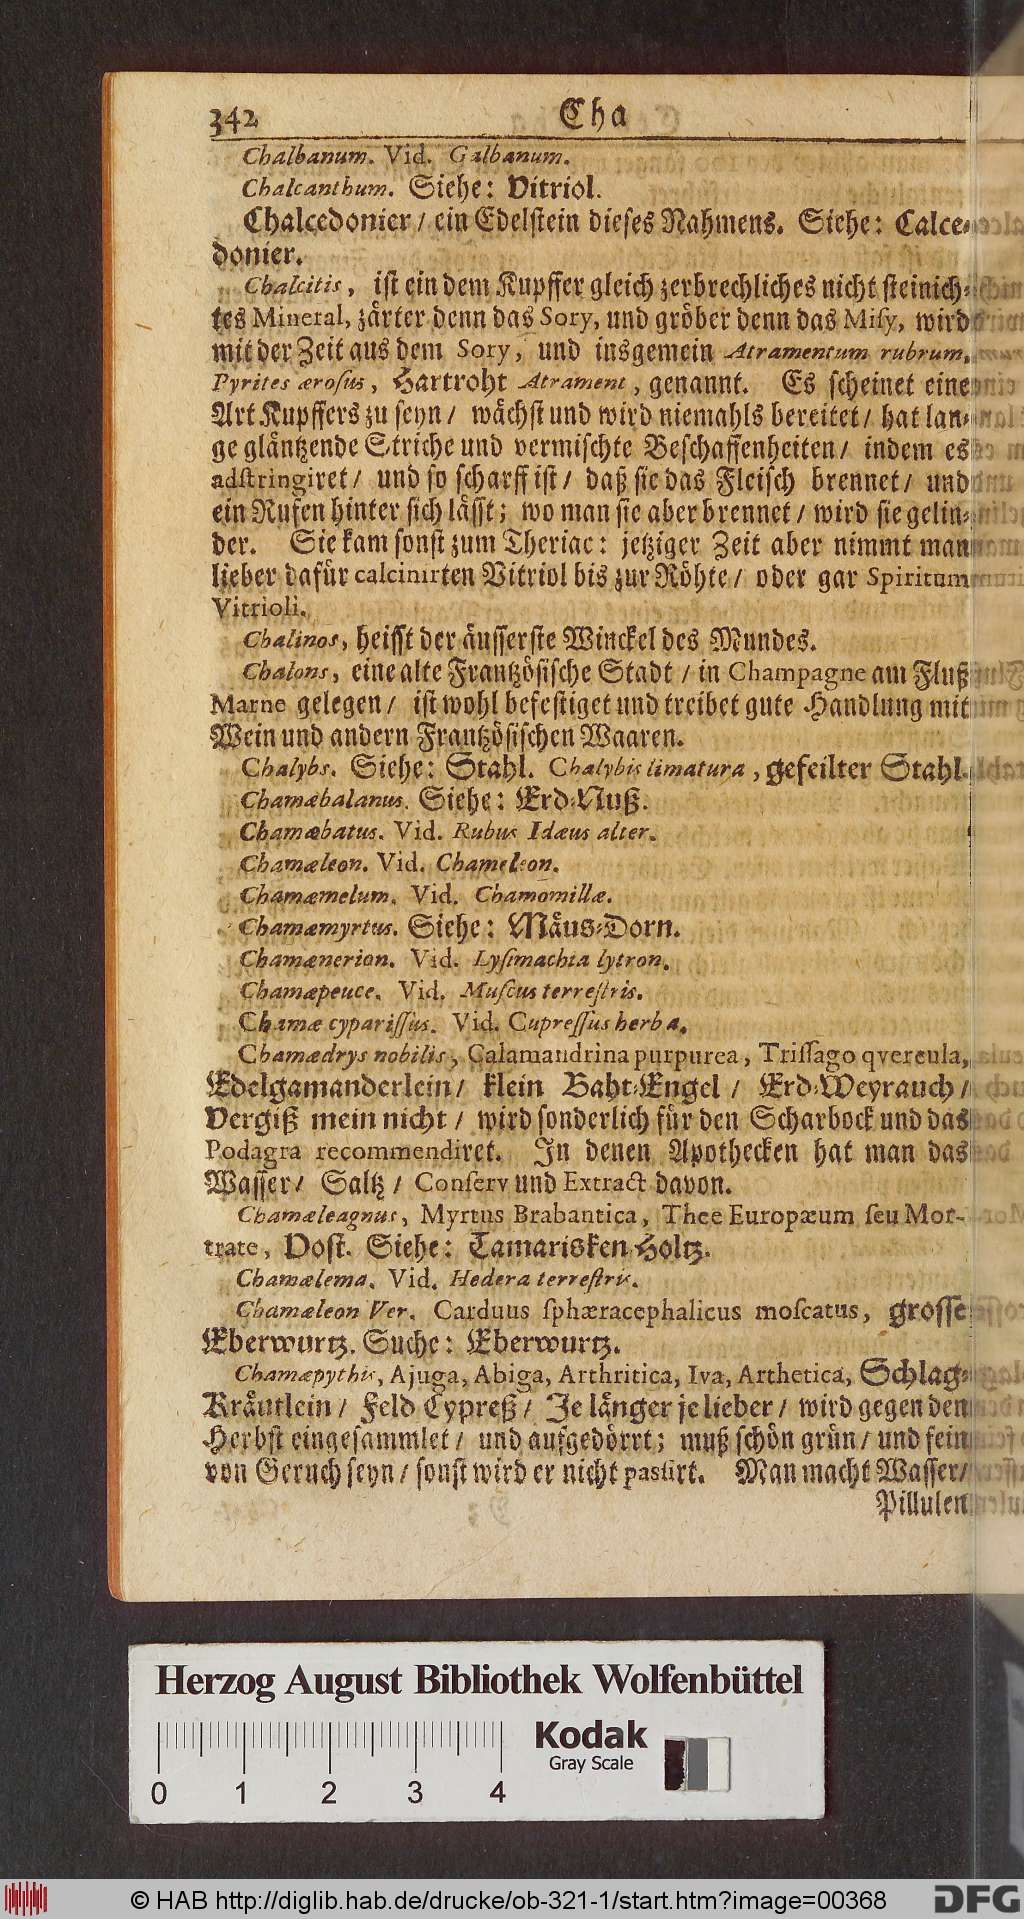 342 Cha
Chalbanum. Vid. Galbanum.
Chalcanthum. Siehe: Vitriol.
Chalcedonier / ein Edelstein dieses Nahmens. Siehe: Calce-
donier.
Chalcitis, ist ein dem Kupffer gleich zerbrechliches nicht steinich-
tes Mineral, zärter denn das Sory, und gröber denn das Misy, wird
mit der Zeit aus dem Sory, und insgemein Atramentum rubrum,
Pyrites ærosus, Hartroht Atrament, genannt. Es scheinet eine
Art Kupffers zu seyn / wächst und wird niemahls bereitet / hat lan-
ge gläntzende Striche und vermischte Beschaffenheiten / indem es
adstringiret / und so scharff ist / daß sie das Fleisch brennet / und
ein Rufen hinter sich lässt; wo man sie aber brennet / wird sie gelin-
der. Sie kam sonst zum Theriac: jetziger Zeit aber nimmt man
lieber dafür calcinirten Vitriol bis zur Röhte / oder gar Spiritum
Vitrioli.
Chalinos, heisst der äusserste Winckel des Mundes.
Chalons, eine alte Frantzösische Stadt / in Champagne am Fluß
Marne gelegen / ist wohl befestiget und treibet gute Handlung mit
Wein und andern Frantzösischen Waaren.
Chalybs. Siehe: Stahl. Chalybis limatura, gefeilter Stahl.
Chamæbalanus. Siehe: Erd-Nuß.
Chamæbatus. Vid. Rubus Idæus alter.
Chamæleon. Vid. Chameleon.
Chamæmelum. Vid. Chamomillæ.
Chamæmyrtus. Siehe: Mäus-Dorn.
Chamænerion. Vid. Lysimachia lytron.
Chamæpeuce. Vid. Muscus terrestris.
Chamæ cyparissus. Vid. Cupressus herba.
Chamædrys nobilis, Calamandrina purpurea, Trissago qvercula,
Edelgamanderlein / klein Baht-Engel / Erd-Weyrauch /
Vergiß mein nicht / wird sonderlich für den Scharbock und das
Podagra recommendiret. In denen Apothecken hat man das
Wasser / Saltz / Conserv und Extract davon.
Chamæleagnus, Myrtus Brabantica, Thee Europæum seu Mor-
trate, Post. Siehe: Tamarisken-Holtz.
Chamælema. Vid. Hedera terrestris.
Chamæleon Ver. Carduus sphæracephalicus moscatus, grosse
Eberwurtz. Suche: Eberwurtz.
Chamæpythis, Ajuga, Abiga, Arthritica, Iva, Arthetica, Schlag-
Kräutlein / Feld Cypreß / Je länger je lieber / wird gegen den
Herbst eingesammlet / und aufgedörrt; muß schön grün / und fein
von Geruch seyn / sonst wird er nicht passirt. Man macht Wasser /
Pillulen
Herzog August Bibliothek Wolfenbüttel
Kodak
Gray Scale
0 1 2 3 4
© HAB http://diglib.hab.de/drucke/ob-321-1/start.htm?image=00368
DFG